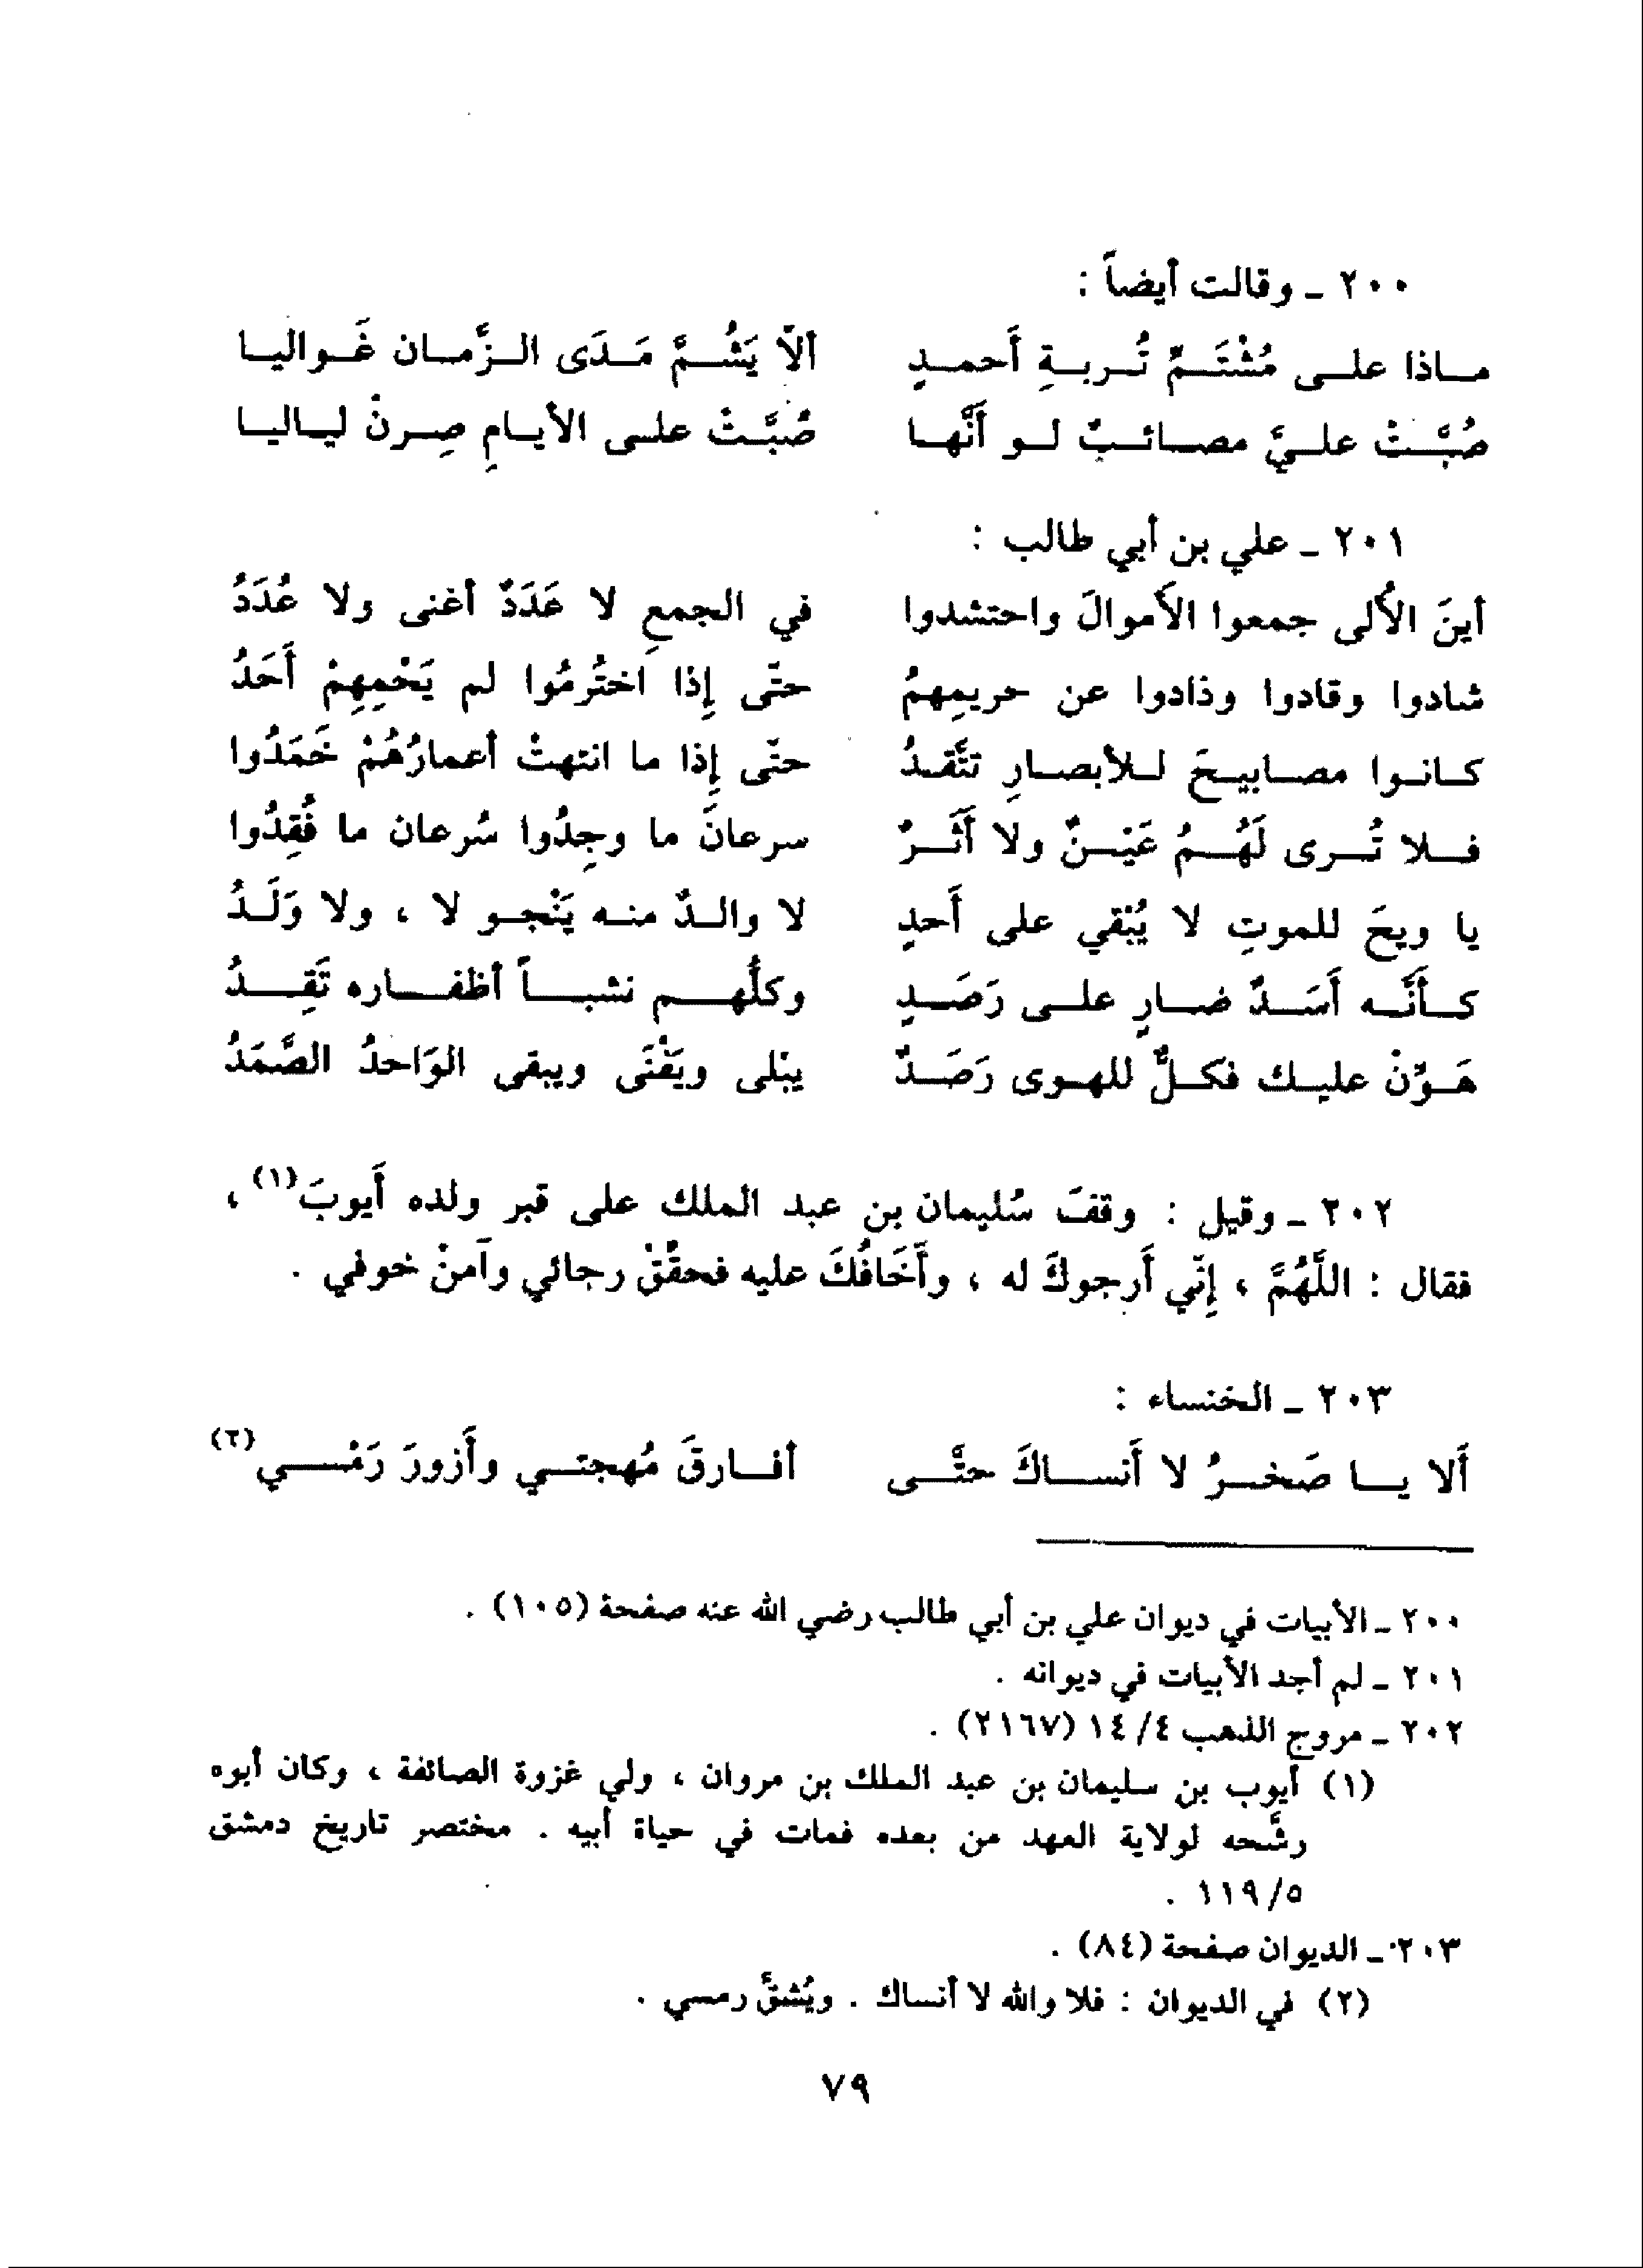 ٢٠٠ ـ وقالت أيضاً :
ماذا على مُشْتَمِّ تُربةِ أَحمدٍ ألاّ يَشُمَّ مَدَى الزَّمان غَواليا
صُبَّتْ عليَّ مصائبٌ لو أَنَّها صُبَّتْ على الأيامِ صِرنْ لياليا
٢٠١ ـ علي بن أبي طالب :
أينَ الأُلى جمعوا الأَموالَ واحتشدوا في الجمعِ لا عَدَدٌ أغنى ولا عُدَدُ
شادوا وقادوا وذادوا عن حريمِهمُ حتّى إِذا اختُرمُوا لم يَحْمِهِمْ أَحَدُ
كانوا مصابيحَ للأبصارِ تتَّقدُ حتّى إِذا ما انتهتْ أعمارُهُمْ خَمَدُوا
فلا تُرى لَهُمُ عَيْنٌ ولا أَثَرٌ سرعانَ ما وجِدُوا سُرعان ما فُقِدُوا
يا ويحَ للموتِ لا يُبْقي على أَحدٍ لا والدٌ منه يَنْجو لا ، ولا وَلَدُ
كأَنَّه أَسَدٌ ضارٍ على رَصَدٍ وكلُّهم نشباً أظفاره تَقِدُ
هَوِّنْ عليك فكلٌّ للهوى رَصَدٌ يبْلى ويَفْنَى ويبقى الوَاحدُ الصَّمَدُ
٢٠٢ ـ وقيل : وقفَ سُليمان بن عبد الملك على قبر ولده أَيوبَ(١) ،
فقال : اللَّهُمَّ ، إِنّي أَرجوكَ له ، وأَخَافُكَ عليه فحقِّقْ رجائي وآمنْ خوفي .
٢٠٣ ـ الخنساء :
أَلا يا صَخرُ لا أَنساكَ حتَّى أفارقَ مُهجتي وأَزورَ رَمْسي(٢)
٢٠٠ ـ الأبيات في ديوان علي بن أبي طالب رضي الله عنه صفحة (١٠٥) .
٢٠١ ـ لم أجد الأبيات في ديوانه .
٢٠٢ ـ مروج الذهب ٤/ ١٤ (٢١٦٧) .
(١) أيوب بن سليمان بن عبد الملك بن مروان ، ولي غزوة الصائفة ، وكان أبوه
رشَّحه لولاية العهد من بعده فمات في حياة أبيه . مختصر تاريخ دمشق
٥/ ١١٩ .
٢٠٣ ـ الديوان صفحة (٨٤) .
(٢) في الديوان : فلا والله لا أنساك . ويُشقَّ رمسي .
٧٩